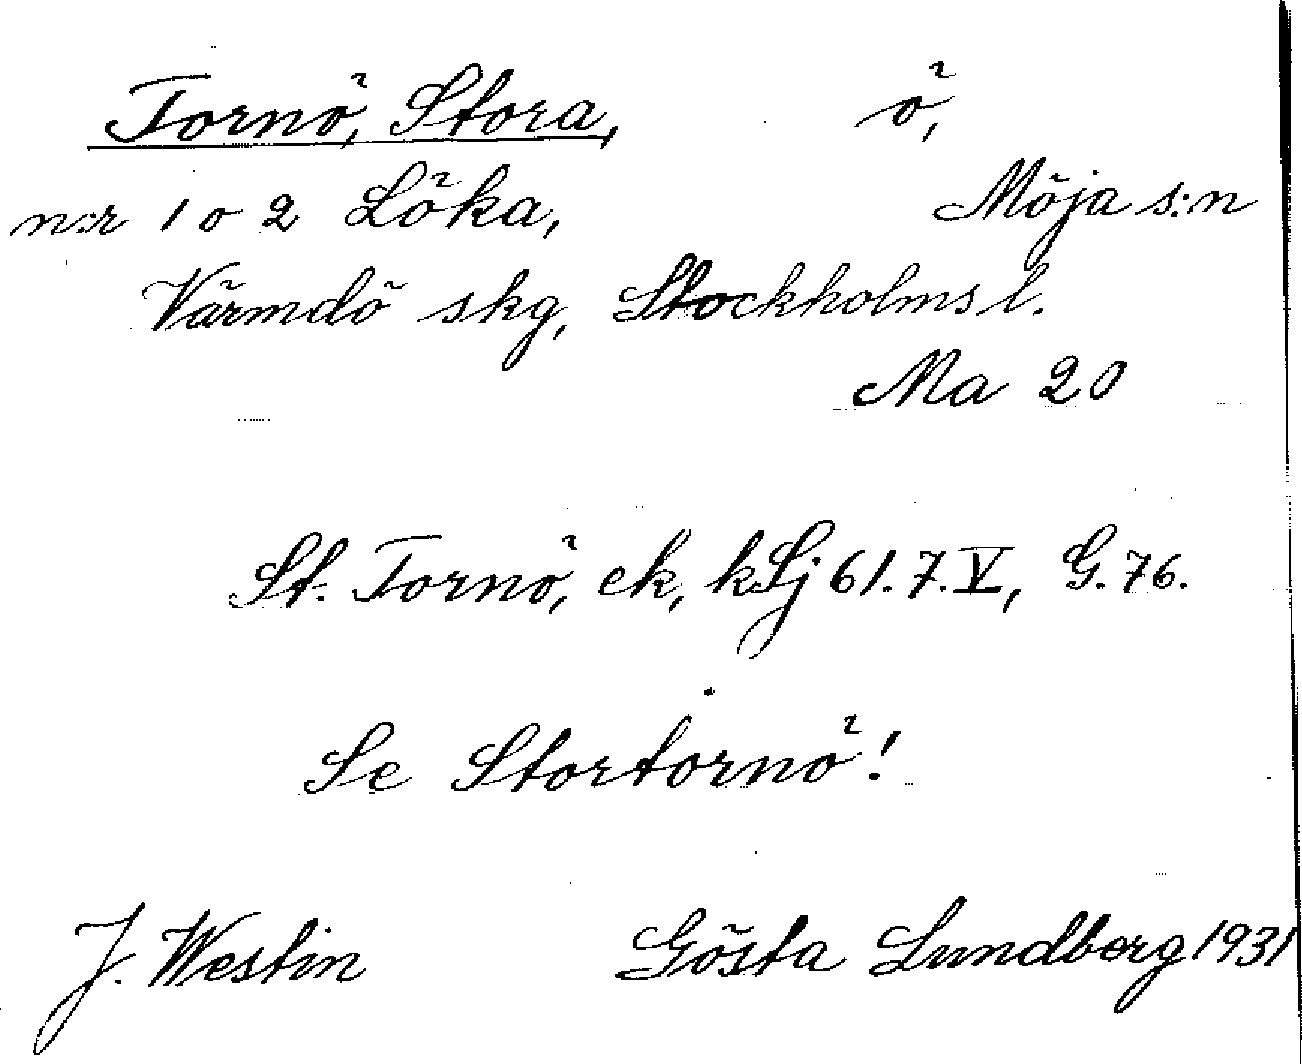 Tornö, Stora, ö,
n:r 1 o 2 Löka, Möja s:n
Värmdö skg, Stockholms l.
Ma 20
St. Tornö, ek, kLj 61.7.V, G. 76.
Se Stortornö!
J. Westin Gösta Lundberg 1931